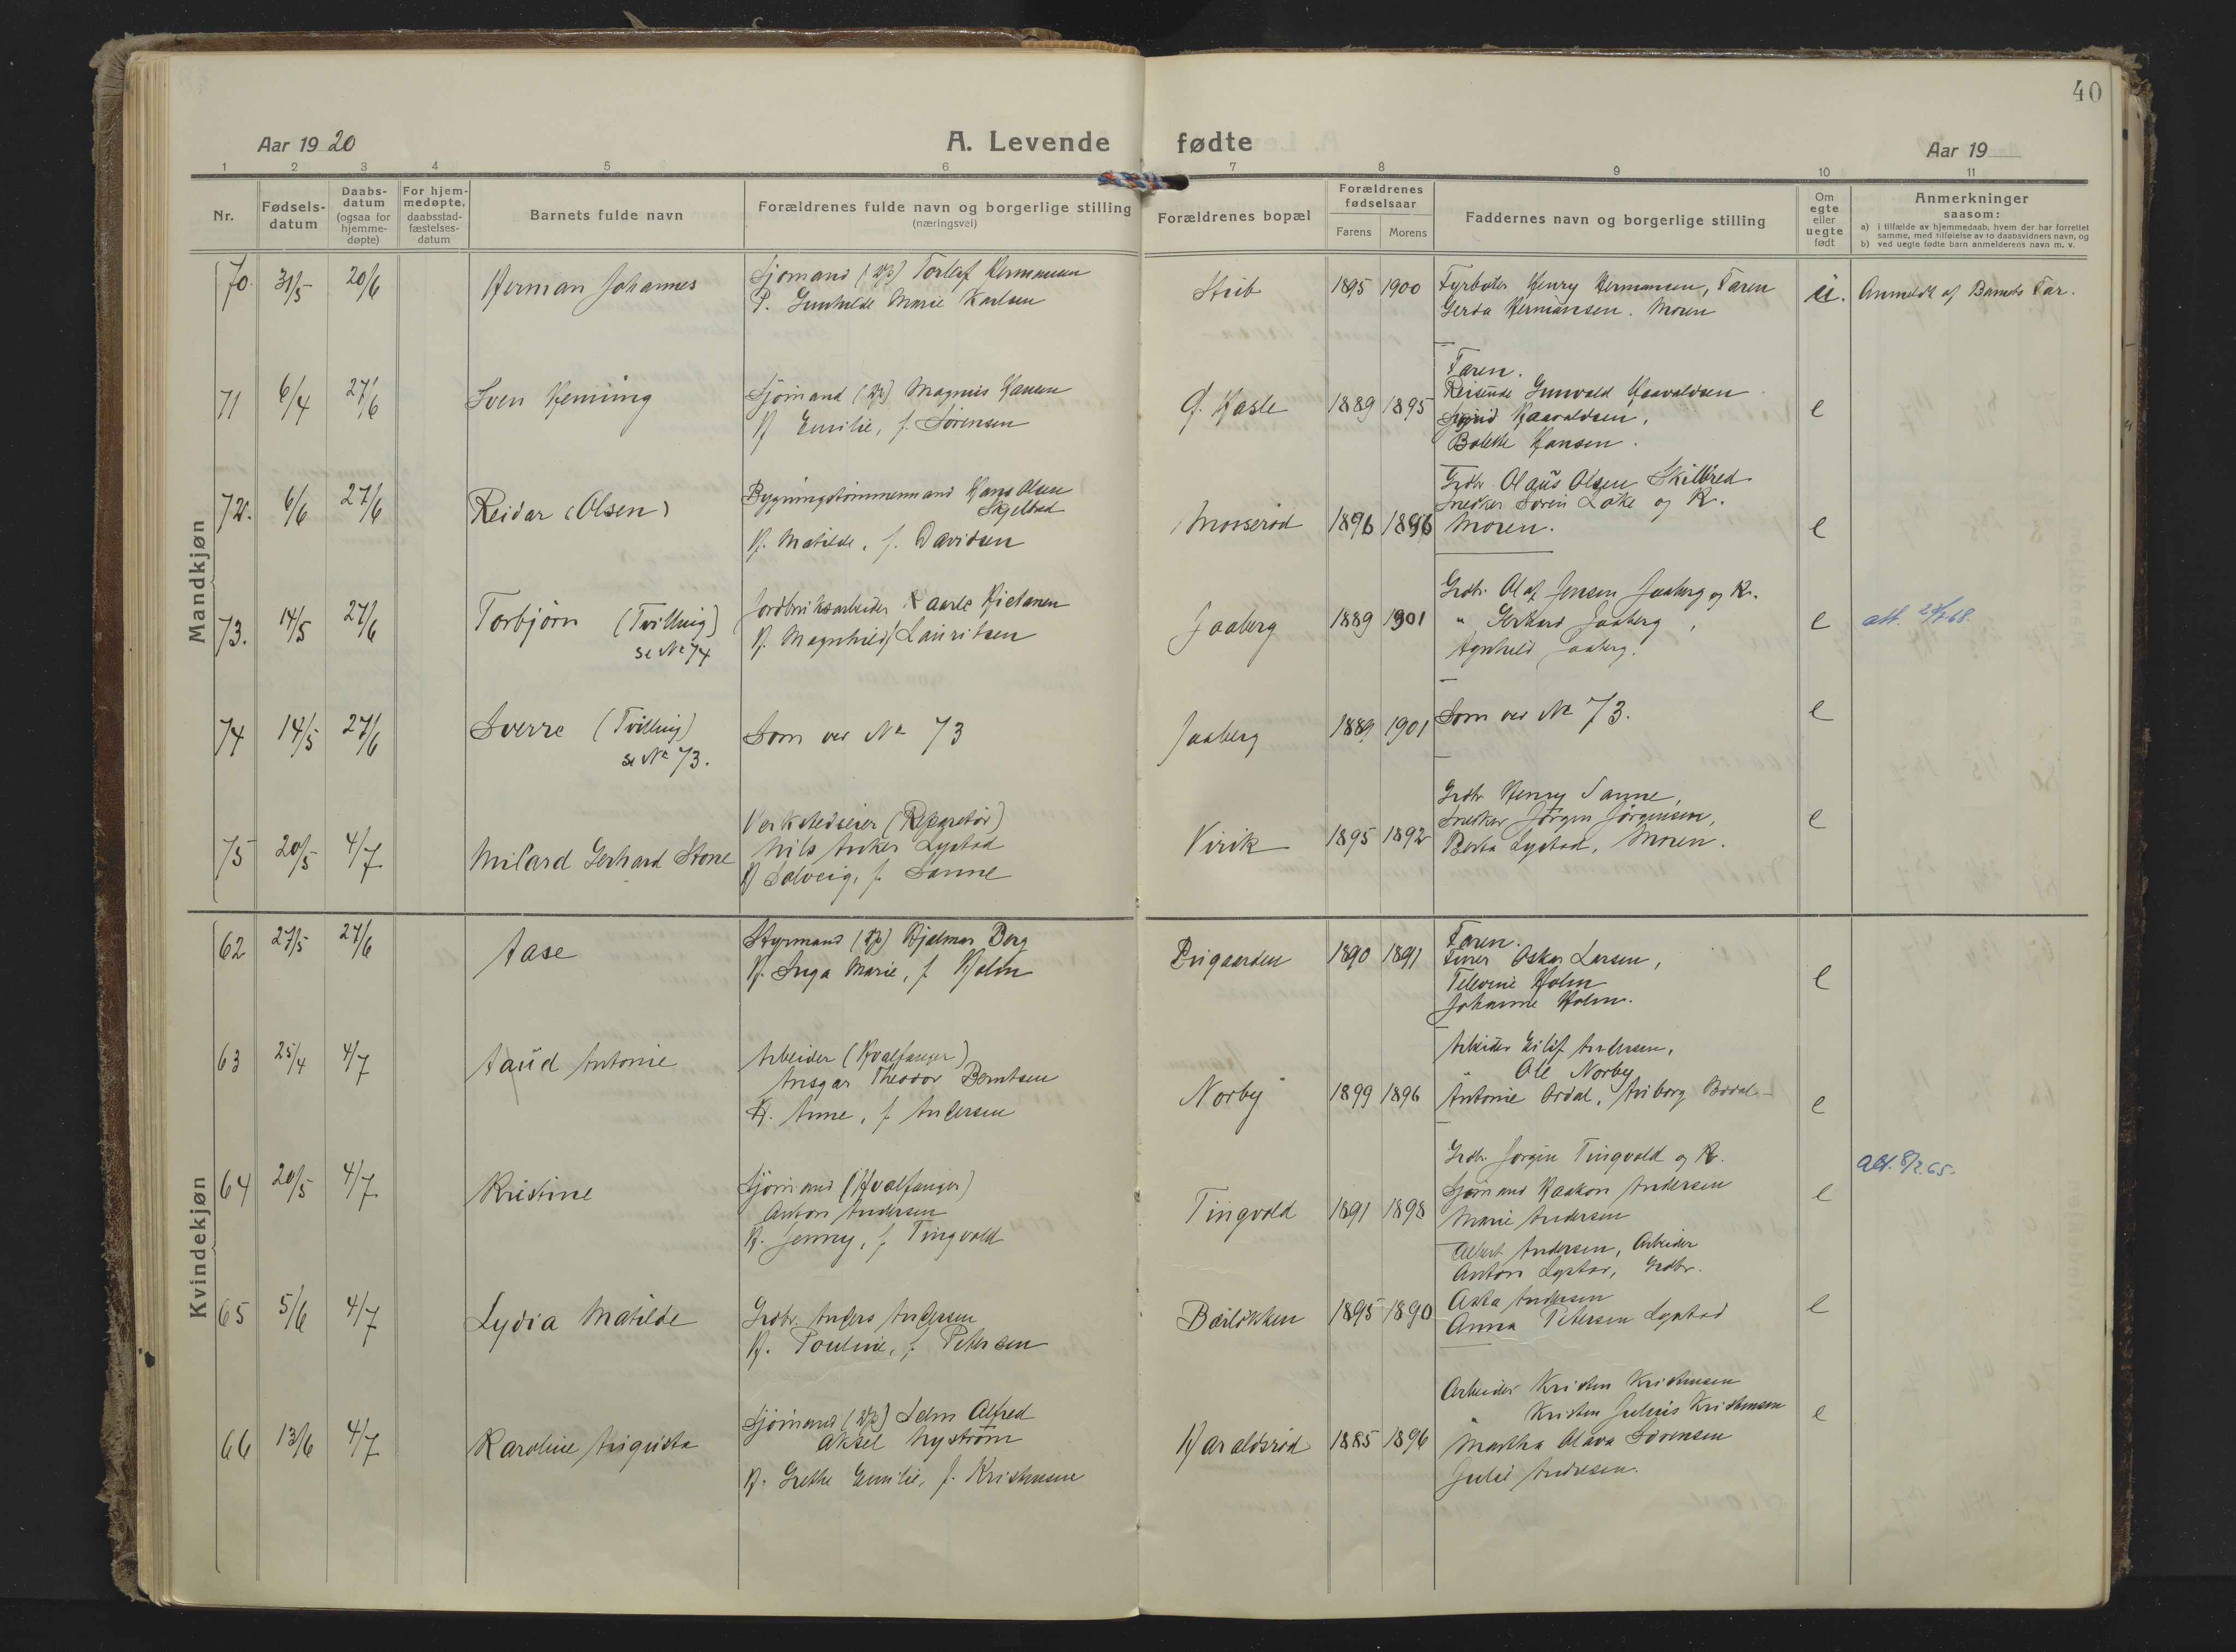 40
Aar 1920
A. Levende fødte
Aar 19
1 2 3 4 5 6 7 8 9 10 11
Nr.
Fødsels-
datum
Daabs-
datum
(ogsaa for
hjemme-
døpte)
For hjem-
medøpte,
daabsstad-
fæstelses-
datum
Barnets fulde navn
Forældrenes fulde navn og borgerlige stilling
(næringsvei)
Forældrenes bopæl
Forældrenes
fødselsaar
Farens
Morens
Faddernes navn og borgerlige stilling
Om
egte
eller
uegte
født
Anmerkninger
saasom:
a) i tilfælde av hjemmedaab, hvem der har forrettet
samme, med tilføielse av to daabsvidners navn, og
b) ved uegte fødte barn anmelderens navn m. v.
Mandkjøn
70. 31/5 20/6 Herman Johannes
Sjømand Torleif Hermansen
P. Gunhilde Marie Karlsen
Stub 1895 1900
Fyrbøter Henry Hermansen, Faren
Gerda Hermansen. Moren
u. Anmeldt af Barnets Far.
71 6/4 27/6 Sven Heming
Sjømand Magnus Hansen
H Emilie, f. Sørensen
G. Hasle 1889 1895
Faren.
Reisende Gunvald Haavaldsen
Sigrid Haavaldsen,
Bolette Hansen.
e
72. 6/6 27/6 Reidar (Olsen)
Bygningstømmermand Hans Olsen
Skjelbred
H. Matilde, f. Davidsen
Mosserød 1896 1896
Grdbr. Olaus Olsen Skilbred
Snedker Søren Løke og K.
Moren.
e
73. 14/5 27/6 Torbjørn (Tvilling)
se No 74
Jordbruksarbeider Kaarle Hietanen
H. Magnhild, Lauritsen
Jaaberg 1889 1901
Grdbr. Olaf Jensen Jaaberg og K.
" Gerhard Jaaberg,
Agnhild Jaaberg.
e
74 14/5 27/6 Sverre (Tvilling)
se No 73.
Som ved No 73
Jaaberg 1889 1901
Som ved No 73.
e
75 20/5 4/7 Milard Gerhard Stone
Verkstedseier (Reparatør)
Nils Anker Lystad
H Solveig, f. Sanne
Virik 1895 1892
Grdbr. Henry Sanne,
Snedker Jørgen Jørgensen,
Berta Lystad, Moren.
e
Kvindekjøn
62 27/5 27/6 Aase
Styrmand Hjalmar Berg
H. Inga Marie, f. Holm
Prisgaarden 1890 1891
Faren.
Oskar Larsen,
Televine Holm
Johanne Holm.
e
63 25/4 4/7 Aaud Antonie
Arbeider (Hvalfanger)
Ansgar Theodor Berntsen
H. Anne, f. Andersen
Norby 1899 1896
Arbeider Eilif Andersen,
" Ole Norby
Antonie Ordal, Anborg Bødal
e
64 20/5 4/7 Kristine
Sjømand (Hvalfanger)
Anton Andersen
H. Jenny, f. Tingvold
Tingvold 1891 1898
Grdbr. Jørgen Tingvold og K.
Sjømand Haakon Andersen
Marie Andersen
e
65 5/6 4/7 Lydia Matilde
Grdbr. Anders Andersen
H. Pouline, f. Petersen
Bærløkken 1895 1890
Albert Andersen, Arbeider
Anton Lystad, Grdbr.
Asta Andersen
Anna Petersen Lystad
e
66 13/6 4/7 Karoline Augusta
Sjømand Edm Alfred
Aksel Nystrøm
H. Grethe Emilie, f. Kristensen
Haraldsrød 1885 1896
Arbeider Kristen Kristensen
" Kristen Julius Kristensen
Martha Olava Sørensen
Julie Andresen.
e